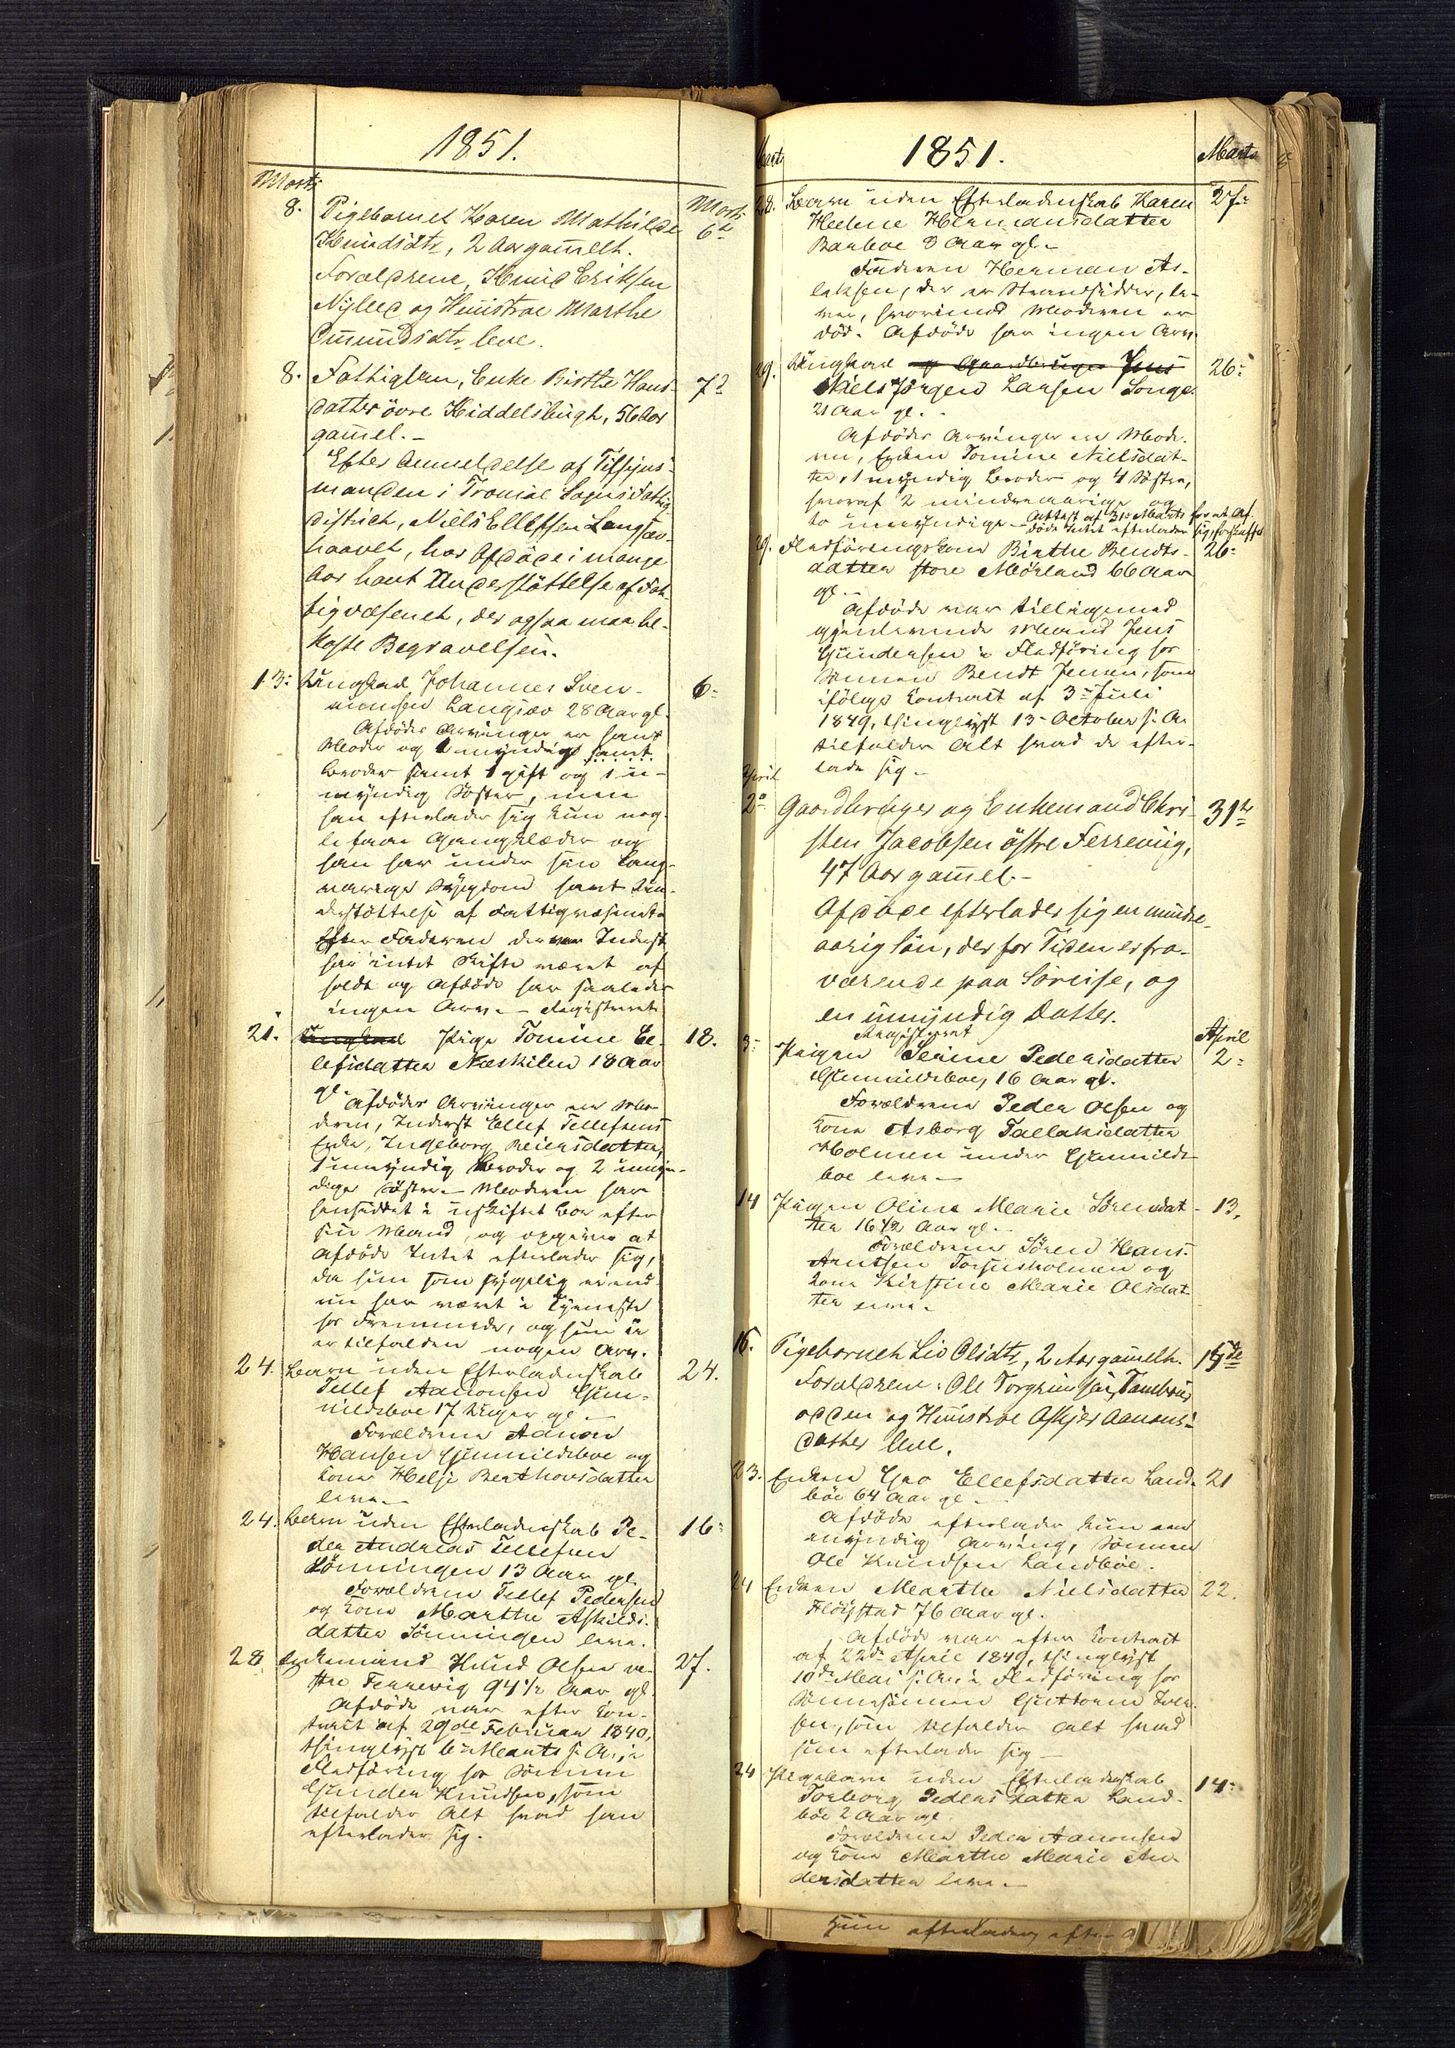 1851.
Marts
Marts
8. Pigebarnet Karen Mathilde 6te
Knudsdtr, 2 Aar gamelt.
Forældrene, Knud Eriksen
og Hustroe Marthe
leve.
8. Fattiglem, Enke Birthe Hans- 7de
datter övre Kiddelsbugh, 56 Aar
gamel.-
Efter Anmeldelse af Tilsyns-
manden i Tromöe Sogns Fattig-
district, Niels Ellefsen Langsæe-
haavet, har Afdöde i mange
Aar havt Understöttelse af Fat-
tigvæsenet, der ogsaa maa be-
koste Begravelsen.
13. Ungkarl Johannes Sven- 6
Langsæe 28 Aar gl.
Afdödes Arvinger er hans
Moder og 1 myndig
Broder samt 1 gift og 1 u-
myndig Söster, men
han efterlader sig kun nog-
le faae Gangklæder og
han har under sin lang-
varige Sygdom havt Un-
derstöttelse af Fattigvæsenet
Efter Faderen der var Inderst
har intet Skifte været af-
holdt og Afdöde har saaledes
ingen Arv. - Registreret
21. Pige Tomine El- 18.
lefsdatter Næskilen 18 Aar
gl.
Afdödes Arvinger er Mo-
deren, Inderst Ellef Tellefsens
Enke, Ingeborg Reiersdatter,
1 umyndig Broder og 2 umyn-
dige Söstre. Moderen har
hensiddet i uskiftet Boe efter
sin Mand, og opgiver at
Afdöde Intet efterlader sig,
da hun som sygelig
har været i Tjeneste
hos Fremmede, og hun ei
er tilfalden nogen Arv.
24. Barn uden Efterladenskab 24.
Tellef Aanonsen Gun-
nildsboe 17 Uger gl.
Forældrene Aanon
Hansen Gunnildsboe og
Kone Helje Berthevsdatter
leve.
24. Barn uden Efterladenskab Pe- 16
der Andreas Tellefsen
Sönningen 13 Aar gl.
Forældrene Tellef Pedersen
og Kone Marthe Askilds-
datter Sönningen leve.
28 Enkemand Knud Olsen ve- 27.
stre Ferrevig 94 1/2 Aar gl.
Afdöde var efter Con-
tract af 29de Februar 1840,
thinglyst 6te Marts s. A. i
Flodföring hos Sönnen
Gunder Knudsen, som
tilfalder Alt hvad han
efterlader sig.
1851.
Marts
Marts
28. Barn uden Efterladenskab Karen 27
Helene Hermansdatter
Barboe 3 Aar gl.
Faderen Herman As-
laksen, der er Strandsidder, le-
ver, hvorimod Moderen er
död. Afdöde har ingen Arv.
29. Ungkarl og Gaardbruger Jens 26
Niels Jörgen Larsen Songe
21 Aar gl.
Afdödes Arvinger er Mode-
ren, Enken Tomine Nielsdat-
ter, 1 myndig Broder og 4 Söstre,
hvoraf 2 mindreaarige og
to umyndige. Attest af 31te Marts for at Af-
döde Intet efterlader sig forskaffet
29. Flodföringskone Birthe Bendts- 26
datter store Mörland 66 Aar
gl.
Afdöde var tilligemed
gjenlevende Mand Jens
Gundersen i Flodföring hos
Sönnen Bendt Jensen, som
ifölge Contract af 3die Juli
1849, thinglyst 13de October s. A.
tilfalder Alt hvad de efter-
lade sig.
April
2 Gaardbruger og Enkemand Chri- 31te
sten Jacobsen östre Ferrevig,
47 Aar gamel.-
Afdöde efterlader sig en mindre-
aarig Sön, der for Tiden er fra-
værende paa Söreise, og
en umyndig Datter.
Registreret
April
3 Pigen Serine Pedersdatter 2
Gunnildsboe, 16 Aar gl.
Forældrene Peder Olsen og
Kone Asborg Tallaksdatter
Holmen under Gunnilds-
boe leve.
14 Pigen Oline Marie Sörensdat- 13.
ter 16 1/2 Aar gl.
Forældrene Sören Hans-
Arntsen Torjusholmen og
Kone Kirstine Marie Olsdat-
ter leve.
15. Pigebarnet Liv Olsdtr, 2 Aar gamelt. 15de
Forældrene: Ole Torgrimsen,
odden og Hustroe Askjer Aanons-
datter leve.
23. Enken Gro Ellefsdatter Land- 21
böe 64 Aar gl.
Afdöde efterlader kun een
myndig Arving, Sönnen
Ole Knudsen Landböe.
24 Enken Marthe Nielsdatter 22.
Flöystad 76 Aar gl.
Afdöde var efter Contract
af 22de April 1849, thinglyst
10de Mai s. A. i Flodföring hos
Sönnesönnen Guttorm Iver-
sen, som tilfalder Alt hvad
hun efterlader sig
24 Pigebarn uden Efterladenskab 14
Torborg Pedersdatter Land-
böe 2 Aar gl.
Forældrene Peder Aanonsen
og Kone Marthe Marie An-
dersdatter leve.
Hun efterlader efter